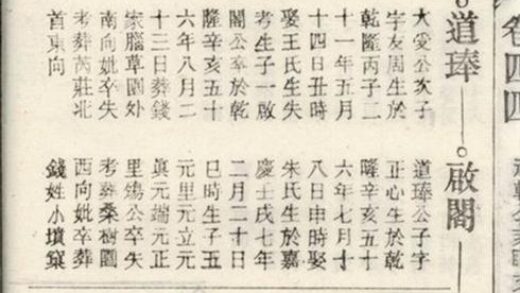 卷四四
道琫
大愛公次子
字友周生於
乾隆丙子二
十一年五月
十四日丑時
娶王氏生失
考生子一啟
閣公卒於乾
隆辛亥五十
六年八月二
十三日葬錢
家腦草園外
南向妣卒失
考葬芮莊北
首東向
啟閣
道琫公子字
正心生於乾
隆辛亥五十
六年七月十
八日申時娶
朱氏生於嘉
慶壬戌七年
二月二十日
巳時生子五
元里元立元
眞元端元正
里鍚公卒失
考葬桑樹園
西向妣卒葬
錢姓小墳窠